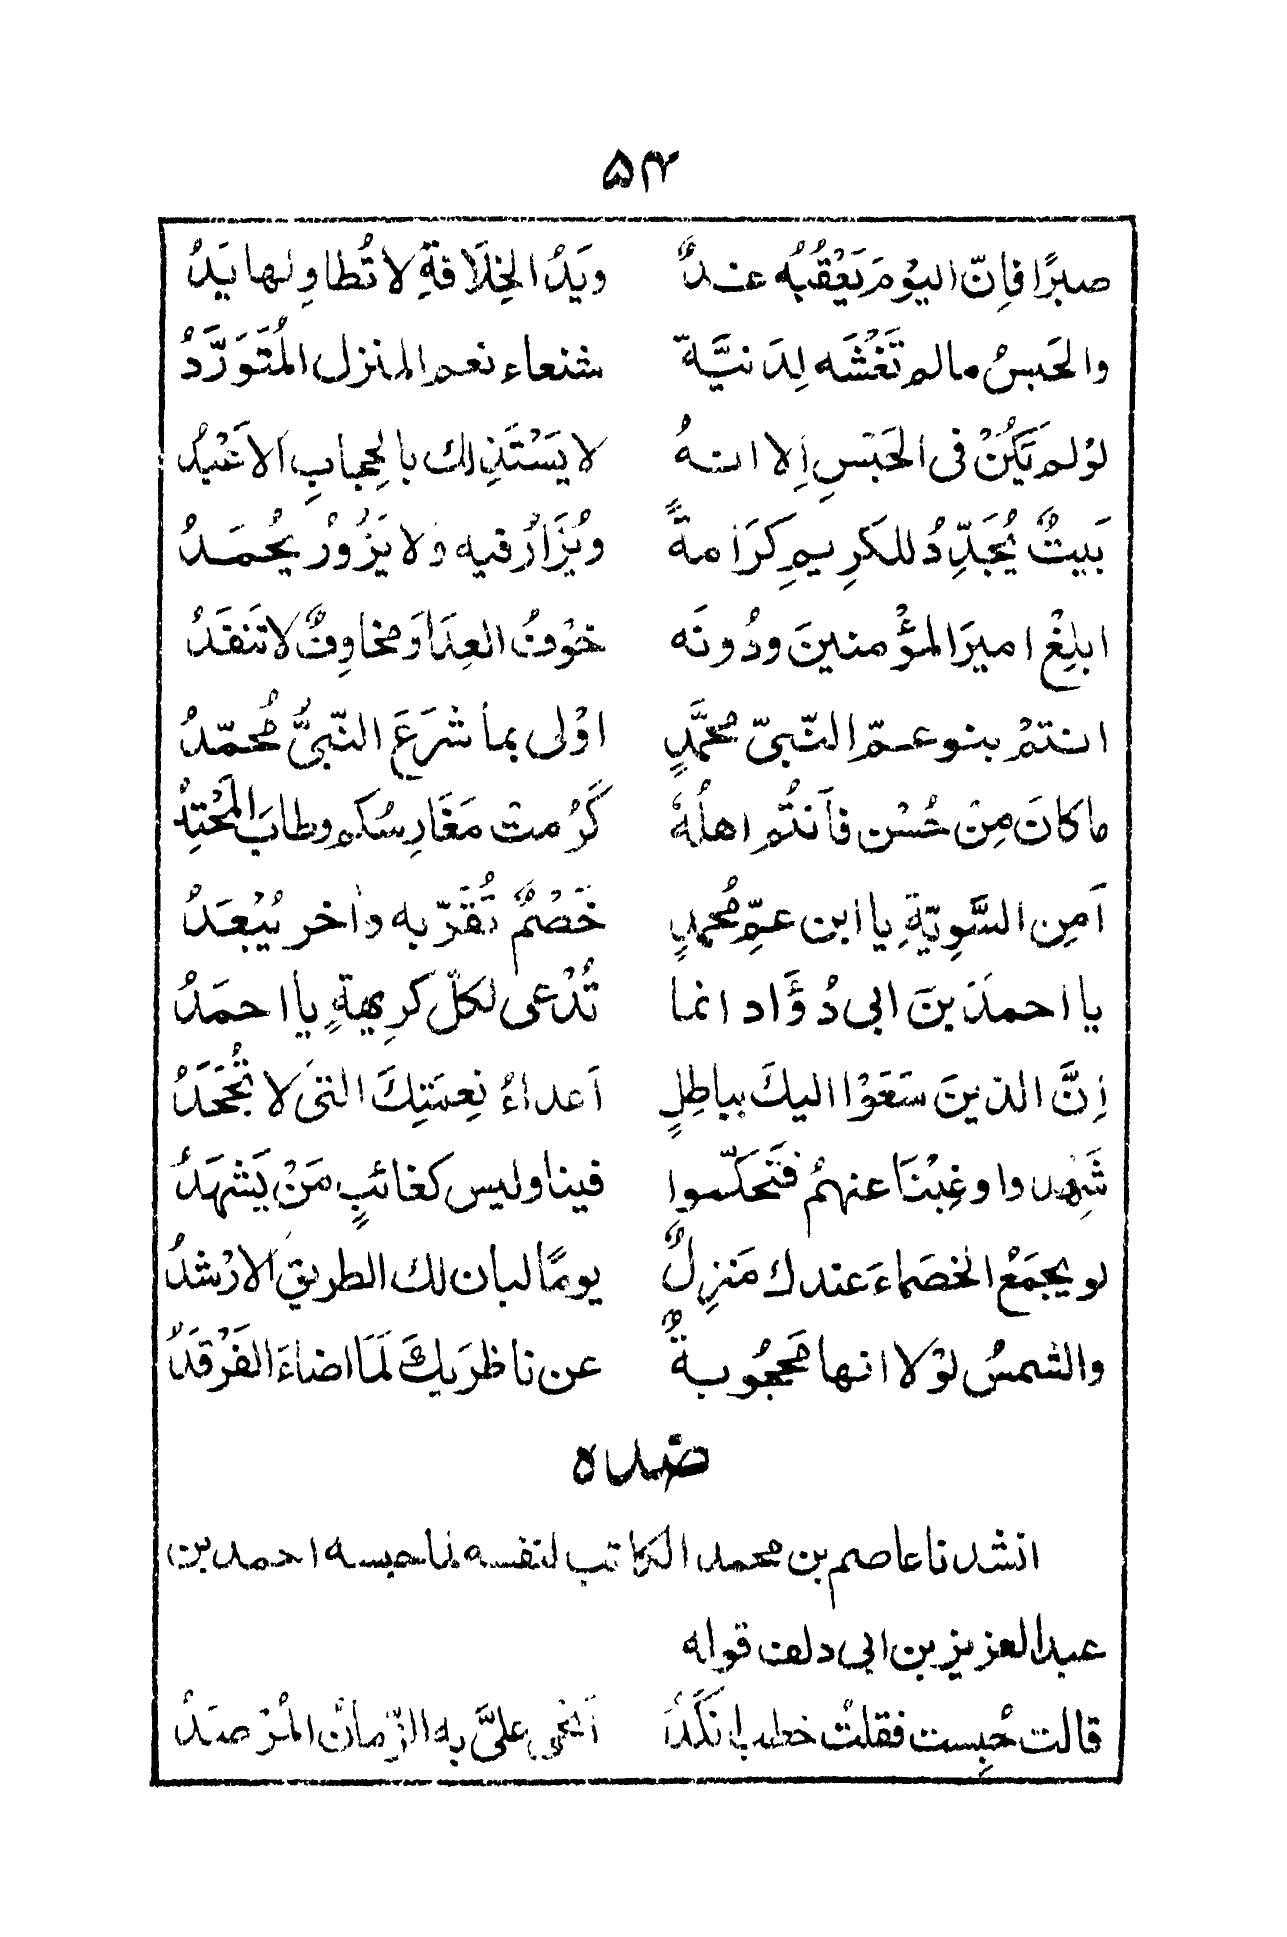 ۵۴
صبرًا فإنّ اليوْمَ يَعْقُبُه عندٌ ويَدُ الخِلَافةِ لا تُطاوِلها يَدُ
والحَبسُ مالم تَغْشَه لِدَنيَّةٍ شنعاء نعم المنزل المُتَوَرَّدُ
لوْلم يَكُنْ فى الحَبْسِ إلا انهُ لا يَسْتَذِلك بالحِجابِ الاَعْبُدُ
بَيتٌ يُجَدِّدُ للكَرِيمِ كَرَامةً ويُزَارُ فيه ولا يَزُوْرُ يحُمَدُ
ابلِغْ اميرَ المؤْمنينَ ودُونَه خوْفُ العِدَا وَمخاوِفٌ لا تَنفَدُ
انتمْ بنو عمّ النّبىّ محمَّدٍ اوْلى بما شرَعَ النّبىُّ مُحمّدُ
ما كانَ مِنْ حُسْن فاَنتُم اهلُهُ كَرُمتْ مَغَارِسُكم وطابَ المَحْتِدُ
اَمِن السَّوِيّةِ يا ابن عمِّ مُحمدٍ خَصْمٌ تُقَرّبه واٰخر يُبْعَدُ
يا احمدَ بنَ ابى دُؤَاد انما تُدْعى لكلّ كريهةٍ يا احمَدُ
اِنَّ الذينَ سَعَوْا اليكَ بباطِلٍ اَعداءُ نِعمَتِكَ التى لا تُجْحَدُ
شَهِدوا وغِبْنَا عنهمُ فَتَحكّموا فينا وليس كغائبٍ مَنْ يَشهَدُ
لو يجمَعُ الخصَماءَ عندك مَنزِلٌ يومًا لبان لك الطريقُ الارْشدُ
والشمسُ لوْلا انها مَحجُوبةٌ عن ناظرَيكَ لَمَا اضاءَ الفَرْقَدُ
ضده
انشدنا عاصم بن محمد الكاتب لنفسه لما حبسه احمد بن
عبد العزيز بن ابى دلف قوله
قالت حُبِست فقلتُ خطب انكَدُ اَنحْى علىَّ به الزّمانُ المُرْصدُ